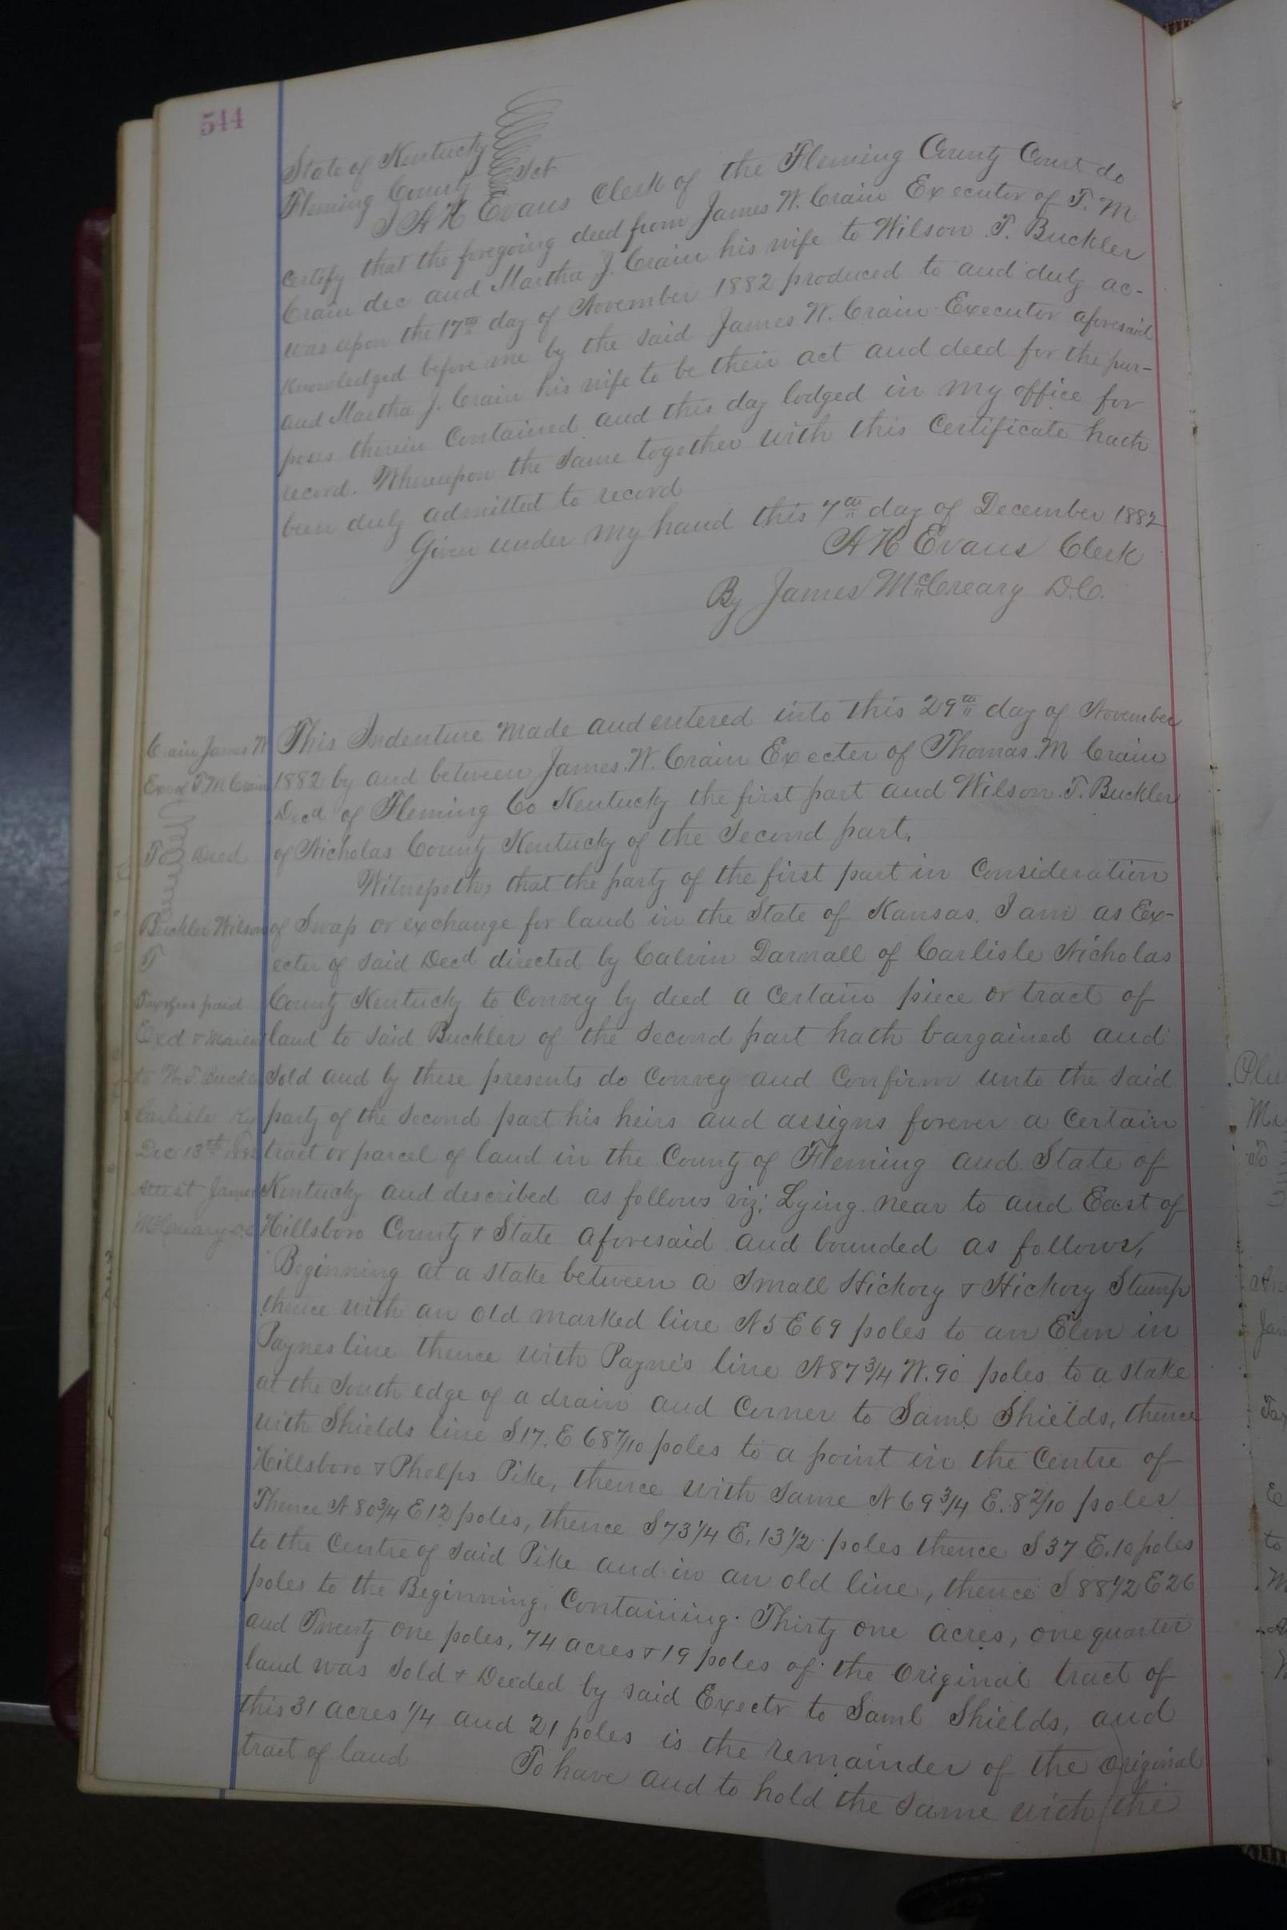 544
State of Kentucky
Fleming County Sct
I A H Evans Clerk of the Fleming County Court do
certify that the foregoing deed from James W. Crain Executor of T. M
Crain dec and Martha J. Crain his wife to Wilson T. Buckler
was upon the 17th day of November 1882 produced to and duly ac-
knowledged before me by the said James W. Crain Executor aforesaid
and Martha J. Crain his wife to be their act and deed for the pur-
poses therein Contained and this day lodged in my office for
record. Whereupon the same together with this Certificate hath
been duly admitted to record
Given under my hand this 7th day of December 1882
A H Evans Clerk
By James McCreary D.C.
Crain James W
Exor of T. M Crain
To Deed
Buckler Wilson
T
Tax & fees paid
Exd & Mailed
to W. T. Buckler
Carlisle Ky
Dec 13th 1882
attest James
McCreary D.C
This Indenture Made and entered into this 29th day of November
1882 by and between James. W. Crain Execter of Thomas. M Crain
Decd of Fleming Co Kentucky the first part and Wilson. T. Buckler
of Nicholas County Kentucky of the Second part.
Witnesseth, that the party of the first part in Consideration
of Swap or exchange for land in the State of Kansas, I am as Ex-
ecter of said Decd directed by Calvin Darnall of Carlisle Nicholas
County Kentucky to Convey by deed a Certain piece or tract of
land to said Buckler of the Second part hath bargained and
Sold and by these presents do Convey and Confirm unto the said
party of the Second part his heirs and assigns forever a Certain
tract or parcel of land in the County of Fleming and State of
Kentucky and described as follows viz; Lying near to and East of
Hillsboro County & State aforesaid and bounded as follows,
Beginning at a stake between a Small Hickory & Hickory Stump
thence with an old marked line N 5 E 69 poles to an Elm in
Paynes line thence with Payne's line N 87 3/4 W. 90 poles to a stake
at the South edge of a drain and Corner to Saml Shields, thence
with Shields line S 17. E 68 7/10 poles to a point in the Centre of
Hillsboro & Phelps Pike, thence with Same N 69 3/4 E. 8 2/10 poles
Thence N 80 3/4 E 12 poles, thence S 73 1/4 E. 13 1/2 poles thence S 37 E. 10 poles
to the Centre of said Pike and in an old line, thence S 88 1/2 E 26
poles to the Beginning, Containing. Thirty one acres, one quarter
and Twenty one poles, 74 acres & 19 poles of the Original tract of
land was Sold & Deeded by said Exectr to Saml Shields, and
this 31 acres 1/4 and 21 poles is the remainder of the original
tract of land To have and to hold the Same with the